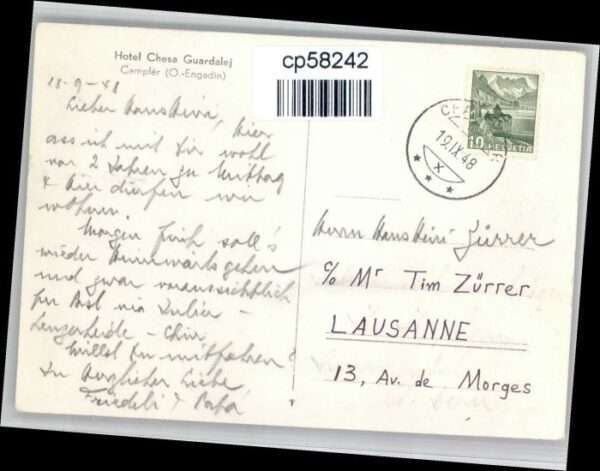 Hotel Chesa Guardalej
Campfér (O.-Engadin)
cp58242
18-9-48
Lieber Hansheiri, hier
ass ich mit Dir wohl
vor 2 Jahren zu Mittag
& hier dürfen wir
wohnen.
Morgen früh soll's
wieder heimwärts gehen
und zwar voraussichtlich
per Post via Julier -
Lenzerheide - Chur.
Willst Du mitfahren?
In herzlicher Liebe
Friedeli & Papa
19.IX.48
X
10 HELVETIA
Herrn Hansheiri Zürrer
c/o Mr Tim Zürrer
LAUSANNE
13, Av. de Morges